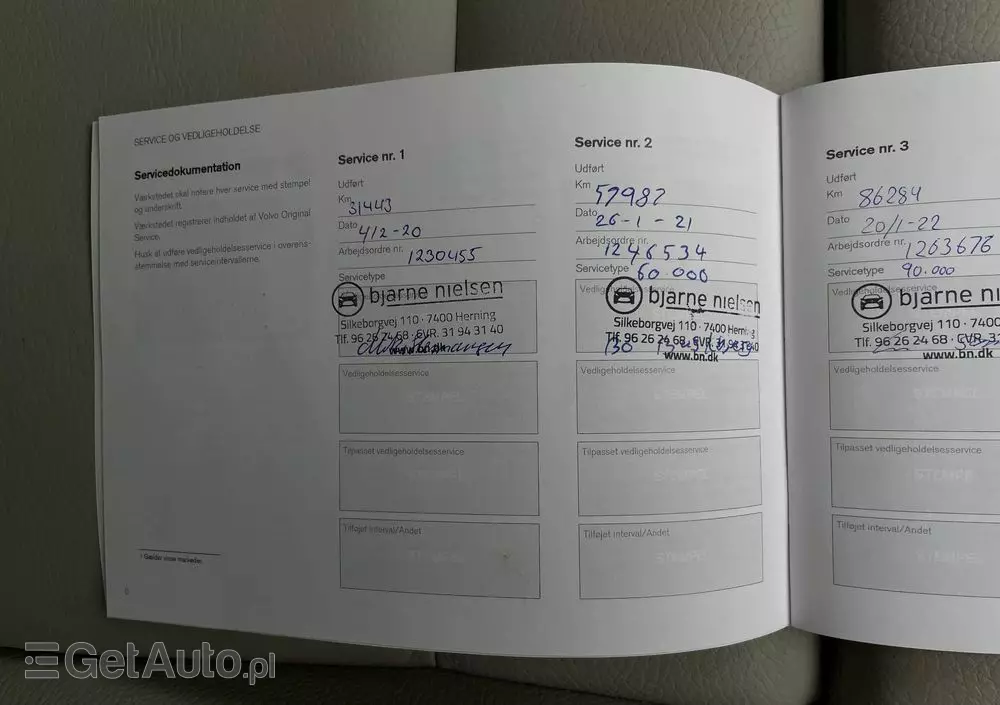 SERVICE OG VEDLIGEHOLDELSE
Servicedokumentation
Værkstedet skal notere hver service med stempel
og underskrift.
Værkstedet registrerer indholdet af Volvo Original
Service.
Husk at udføre vedligeholdelsesservice i overens-
stemmelse med serviceintervallerne.
1 Gælder visse markeder.
Service nr. 1
Udført
Km 31443
Dato 4/2-20
Arbejdsordre nr. 1230455
Servicetype
bjarne nielsen
Silkeborgvej 110 · 7400 Herning
Tlf. 96 26 24 68 · CVR. 31 94 31 40
www.bn.dk
Vedligeholdelsesservice
STEMPEL
Tilpasset vedligeholdelsesservice
STEMPEL
Tilføjet interval/Andet
STEMPEL
Service nr. 2
Udført
Km 57982
Dato 26-1-21
Arbejdsordre nr. 1246534
Servicetype 60.000
bjarne nielsen
Silkeborgvej 110 · 7400 Herning
Tlf. 96 26 24 68 · CVR. 31 94 31 40
www.bn.dk
Vedligeholdelsesservice
STEMPEL
Tilpasset vedligeholdelsesservice
STEMPEL
Tilføjet interval/Andet
STEMPEL
Service nr. 3
Udført
Km 86284
Dato 20/1-22
Arbejdsordre nr. 1263676
Servicetype 90.000
Vedligeholdelsesservice
bjarne ni
Silkeborgvej 110 · 7400
Tlf. 96 26 24 68 · CVR. 3
www.bn.dk
Vedligeholdelsesservice
STEMPEL
Tilpasset vedligeholdelsesservice
STEMPEL
Tilføjet interval/Andet
STEMPEL
GetAuto.pl